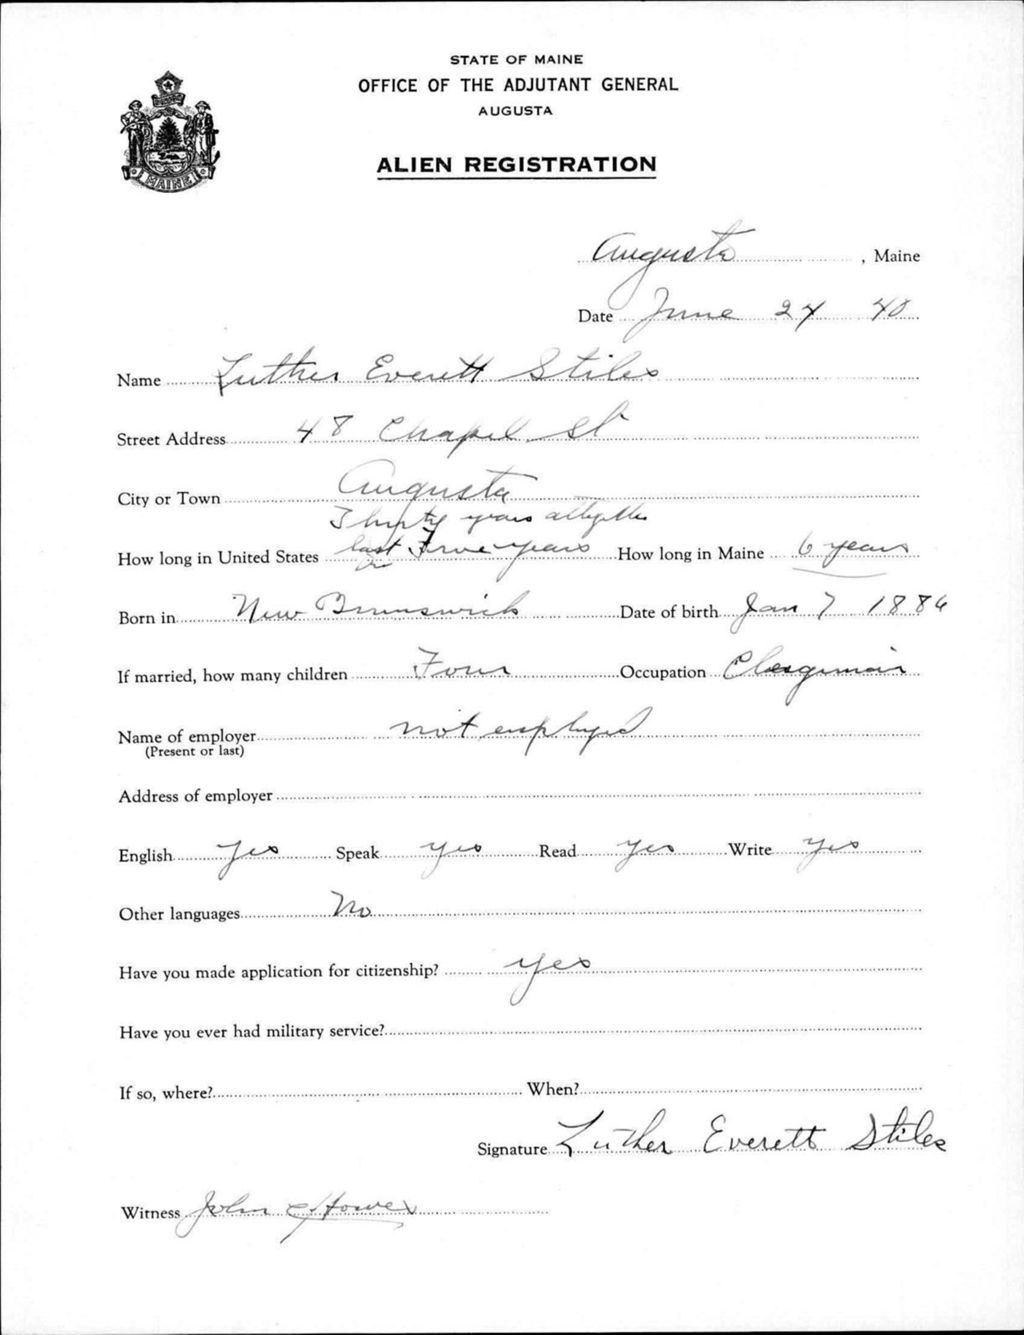 STATE OF MAINE
OFFICE OF THE ADJUTANT GENERAL
AUGUSTA
ALIEN REGISTRATION
MAINE
Augusta, Maine
Date June 24 40
Name Luther Everett Stiles
Street Address 48 Chapel St
City or Town Augusta
Thirty years altogether
How long in United States last Five years How long in Maine 6 years
Born in New Brunswick Date of birth Jan 7 1886
If married, how many children Four Occupation Clergyman
Name of employer not employed
(Present or last)
Address of employer
English yes Speak yes Read yes Write yes
Other languages No
Have you made application for citizenship? yes
Have you ever had military service?
If so, where? When?
Signature Luther Everett Stiles
Witness John